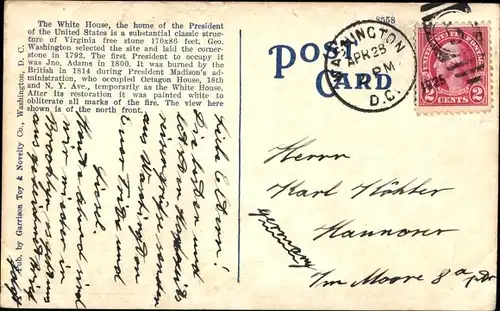 The White House, the home of the President
of the United States is a substantial classic struc-
ture of Virginia free stone 170x86 feet. Geo.
Washington selected the site and laid the corner-
stone in 1792. The first President to occupy it
was Jno. Adams in 1800. It was burned by the
British in 1814 during President Madison's ad-
ministration, who occupied Octagon House, 18th
and N. Y. Ave., temporarily as the White House.
After its restoration it was painted white to
obliterate all marks of the fire. The view here
shown is of the north front.
Pub. by Garrison Toy & Novelty Co., Washington, D. C.
POST
CARD
8558
WASHINGTON
APR 28
PM
D.C.
UNITED STATES POSTAGE
2 CENTS 2
Liebe Eltern!
Die besten und
aus Washington
Euer
und
Karl.
Heute abend sind
wir wieder in
Brooklyn
Herrn
Karl Köhler
Hannover
Germany
Im Moore 8a